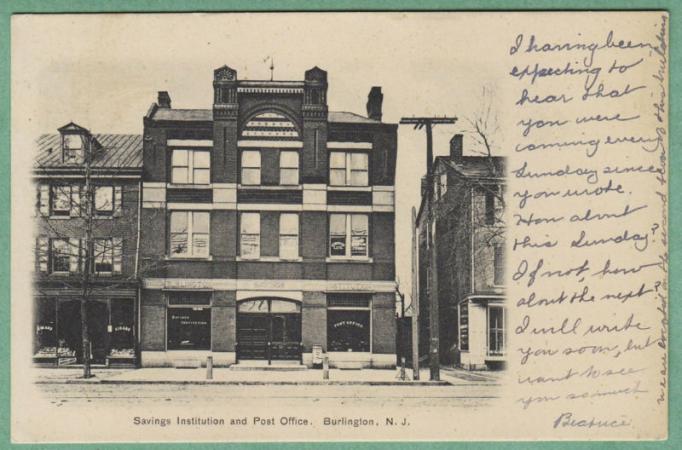 I having been
expecting to
hear that
you were
coming every
Sunday since
you wrote.
How about
this Sunday?
If not, how
about the next?
I will write
you soon, but
want to see
you so much
Beatrice
we are on the second floor of this building
SAVINGS
INSTITUTION
POST OFFICE
CIGARS
Savings Institution and Post Office. Burlington, N. J.